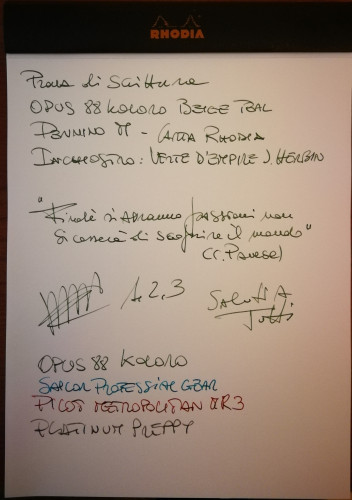 RHODIA
Prova di Scrittura
OPUS 88 KOLORO BEIGE TEAL
PENNINO M - CARTA RHODIA
INCHIOSTRO: VERTE D'EMPIRE J. HERBIN
"Finché si avranno passioni non
si cesserà di scoprire il mondo"
(C. Pavese)
1, 2, 3
Saluti A
Tutti
OPUS 88 KOLORO
SAILOR PROFESSIONAL GEAR
PILOT METROPOLITAN MR3
PLATINUM PREPPY